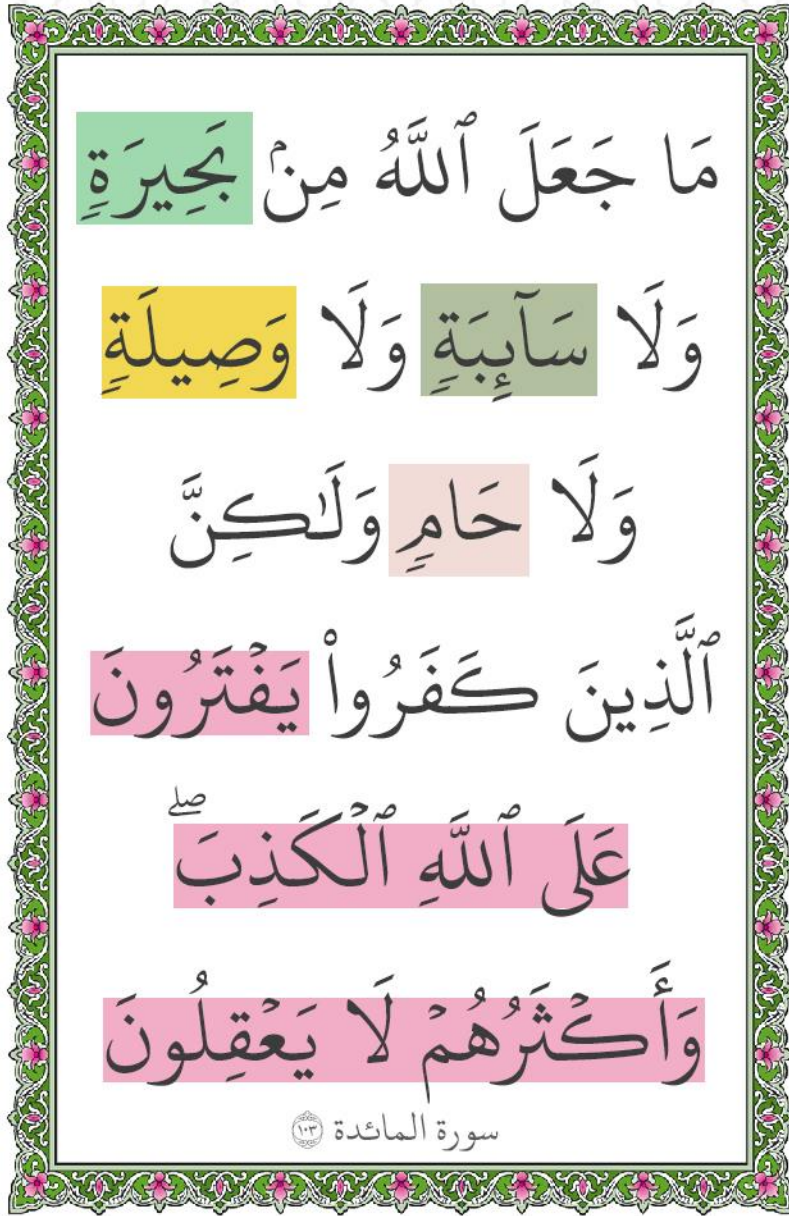 مَا جَعَلَ ٱللَّهُ مِنۢ بَحِيرَةٖ
وَلَا سَآئِبَةٖ وَلَا وَصِيلَةٖ
وَلَا حَامٖ وَلَٰكِنَّ
ٱلَّذِينَ كَفَرُواْ يَفۡتَرُونَ
عَلَى ٱللَّهِ ٱلۡكَذِبَۖ
وَأَكۡثَرُهُمۡ لَا يَعۡقِلُونَ
سورة المائدة ١٠٣